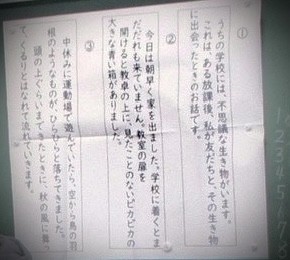 ①
うちの学校には、不思議な生き物がいます。
これは、ある放課後、私が友だちと、その生き物
に出会ったときのお話です。
②
今日は朝早く家を出ました。学校に着くとま
だだれも来ていません。教室の扉を
開けると教卓の上に、見たことのないピカピカの
大きな青い箱がありました。
③
中休みに運動場で遊んでいたら、空から鳥の羽
根のようなものが、ひらひらと落ちてきました。
頭の上ぐらいまできたときに、秋の風に舞っ
て、くるりとはなれて流れていきます。
12345678